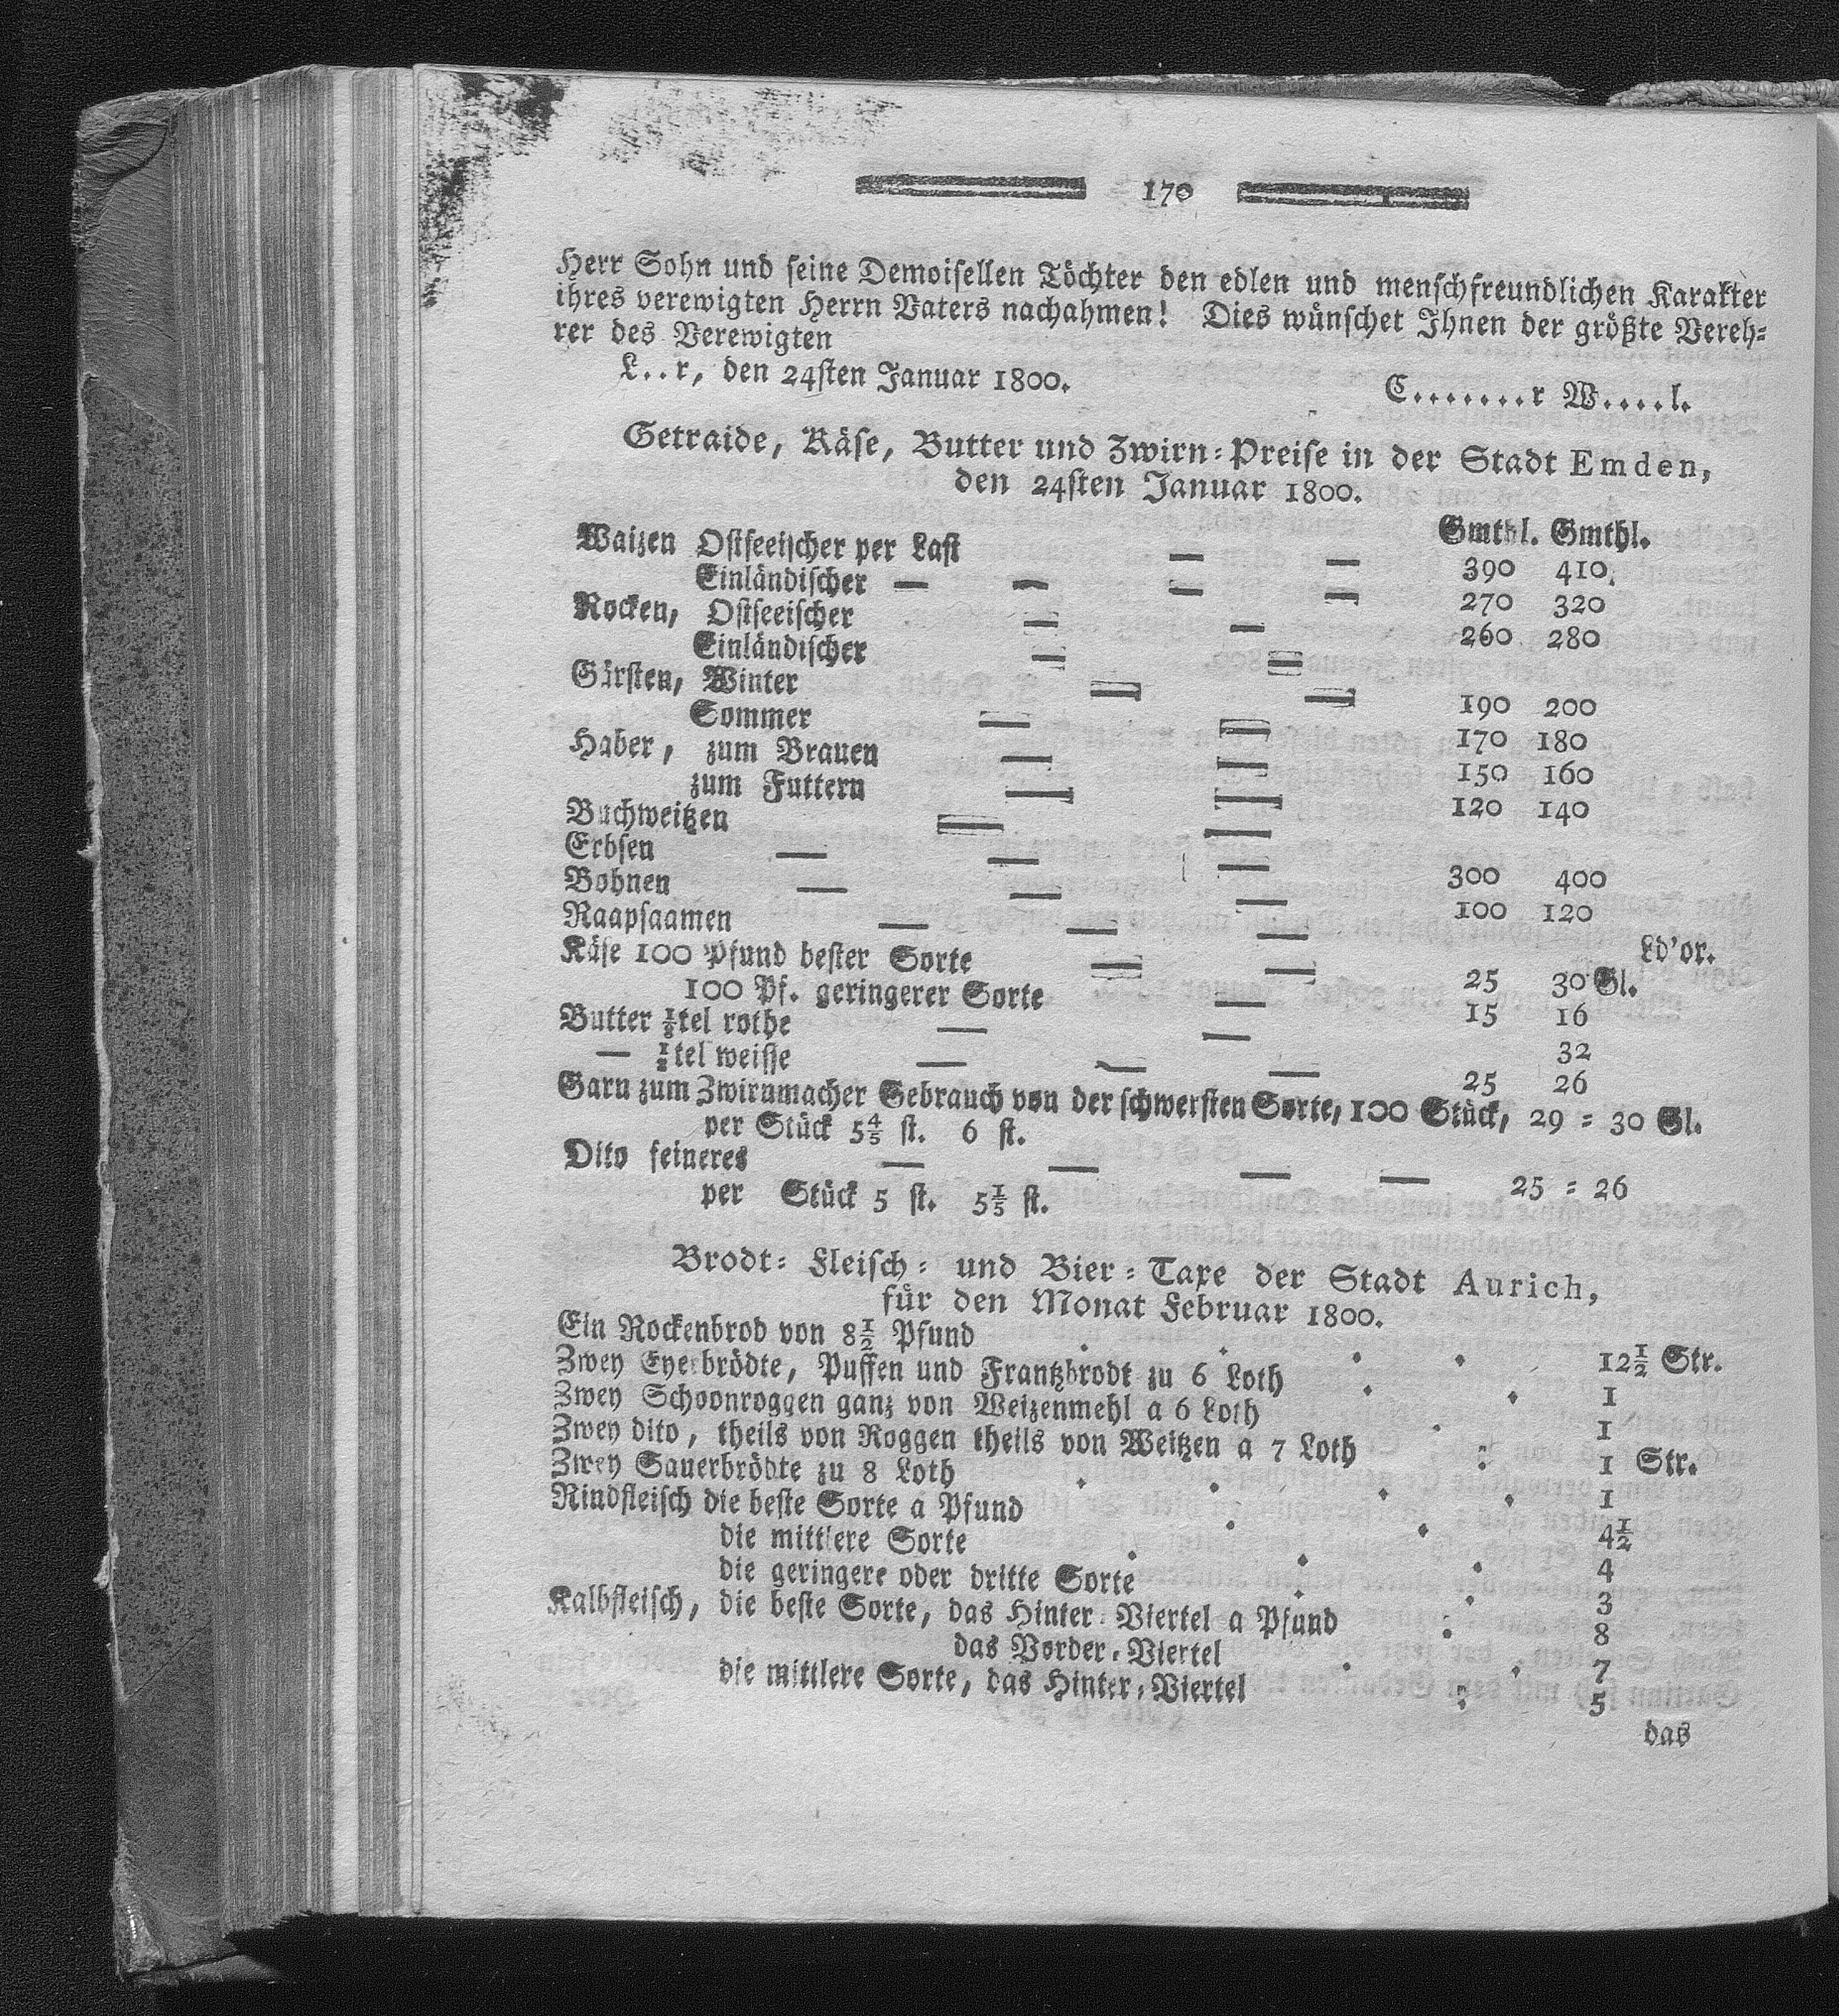 170
Herr Sohn und seine Demoisellen Töchter den edlen und menschfreundlichen Karakter
ihres verewigten Herrn Vaters nachahmen! Dies wünschet Ihnen der größte Vereh=
rer des Verewigten
L..r, den 24sten Januar 1800. C.......r W....l.
Getraide, Käse, Butter und Zwirn=Preise in der Stadt Emden,
den 24sten Januar 1800.
Gmthl. Gmthl.
Waizen Ostseeischer per Last — — 390 410.
Einländischer — — — — 270 320
Rocken, Ostseeischer — — 260 280
Einländischer — —
Gärsten, Winter — — 190 200
Sommer — — 170 180
Haber, zum Brauen — — 150 160
zum Futtern — — 120 140
Buchweitzen — —
Erbsen — — — 300 400
Bohnen — — — 100 120
Raapsaamen — — — Ld'or.
Käse 100 Pfund bester Sorte — — 25 30 Gl.
100 Pf. geringerer Sorte — 15 16
Butter ⅛tel rothe — — 32
— ½tel weisse — — — 25 26
Garn zum Zwirnmacher Gebrauch von der schwersten Sorte, 100 Stück, 29 = 30 Gl.
per Stück 5⅘ st. 6 st.
Dito feineres — — — — 25 = 26
per Stück 5 st. 5⅕ st.
Brodt= Fleisch= und Bier=Taxe der Stadt Aurich,
für den Monat Februar 1800.
Ein Rockenbrod von 8½ Pfund . . . . 12½ Str.
Zwey Eyerbrödte, Puffen und Frantzbrodt zu 6 Loth . . 1
Zwey Schoonroggen ganz von Weizenmehl a 6 Loth . 1
Zwey dito, theils von Roggen theils von Weitzen a 7 Loth : 1 Str.
Zwey Sauerbrödte zu 8 Loth . . . . 1
Rindfleisch die beste Sorte a Pfund . . 4½
die mittlere Sorte . . . 4
die geringere oder dritte Sorte . . 3
Kalbfleisch, die beste Sorte, das Hinter=Viertel a Pfund : 8
das Vorder=Viertel . . 7
die mittlere Sorte, das Hinter=Viertel : 5
das